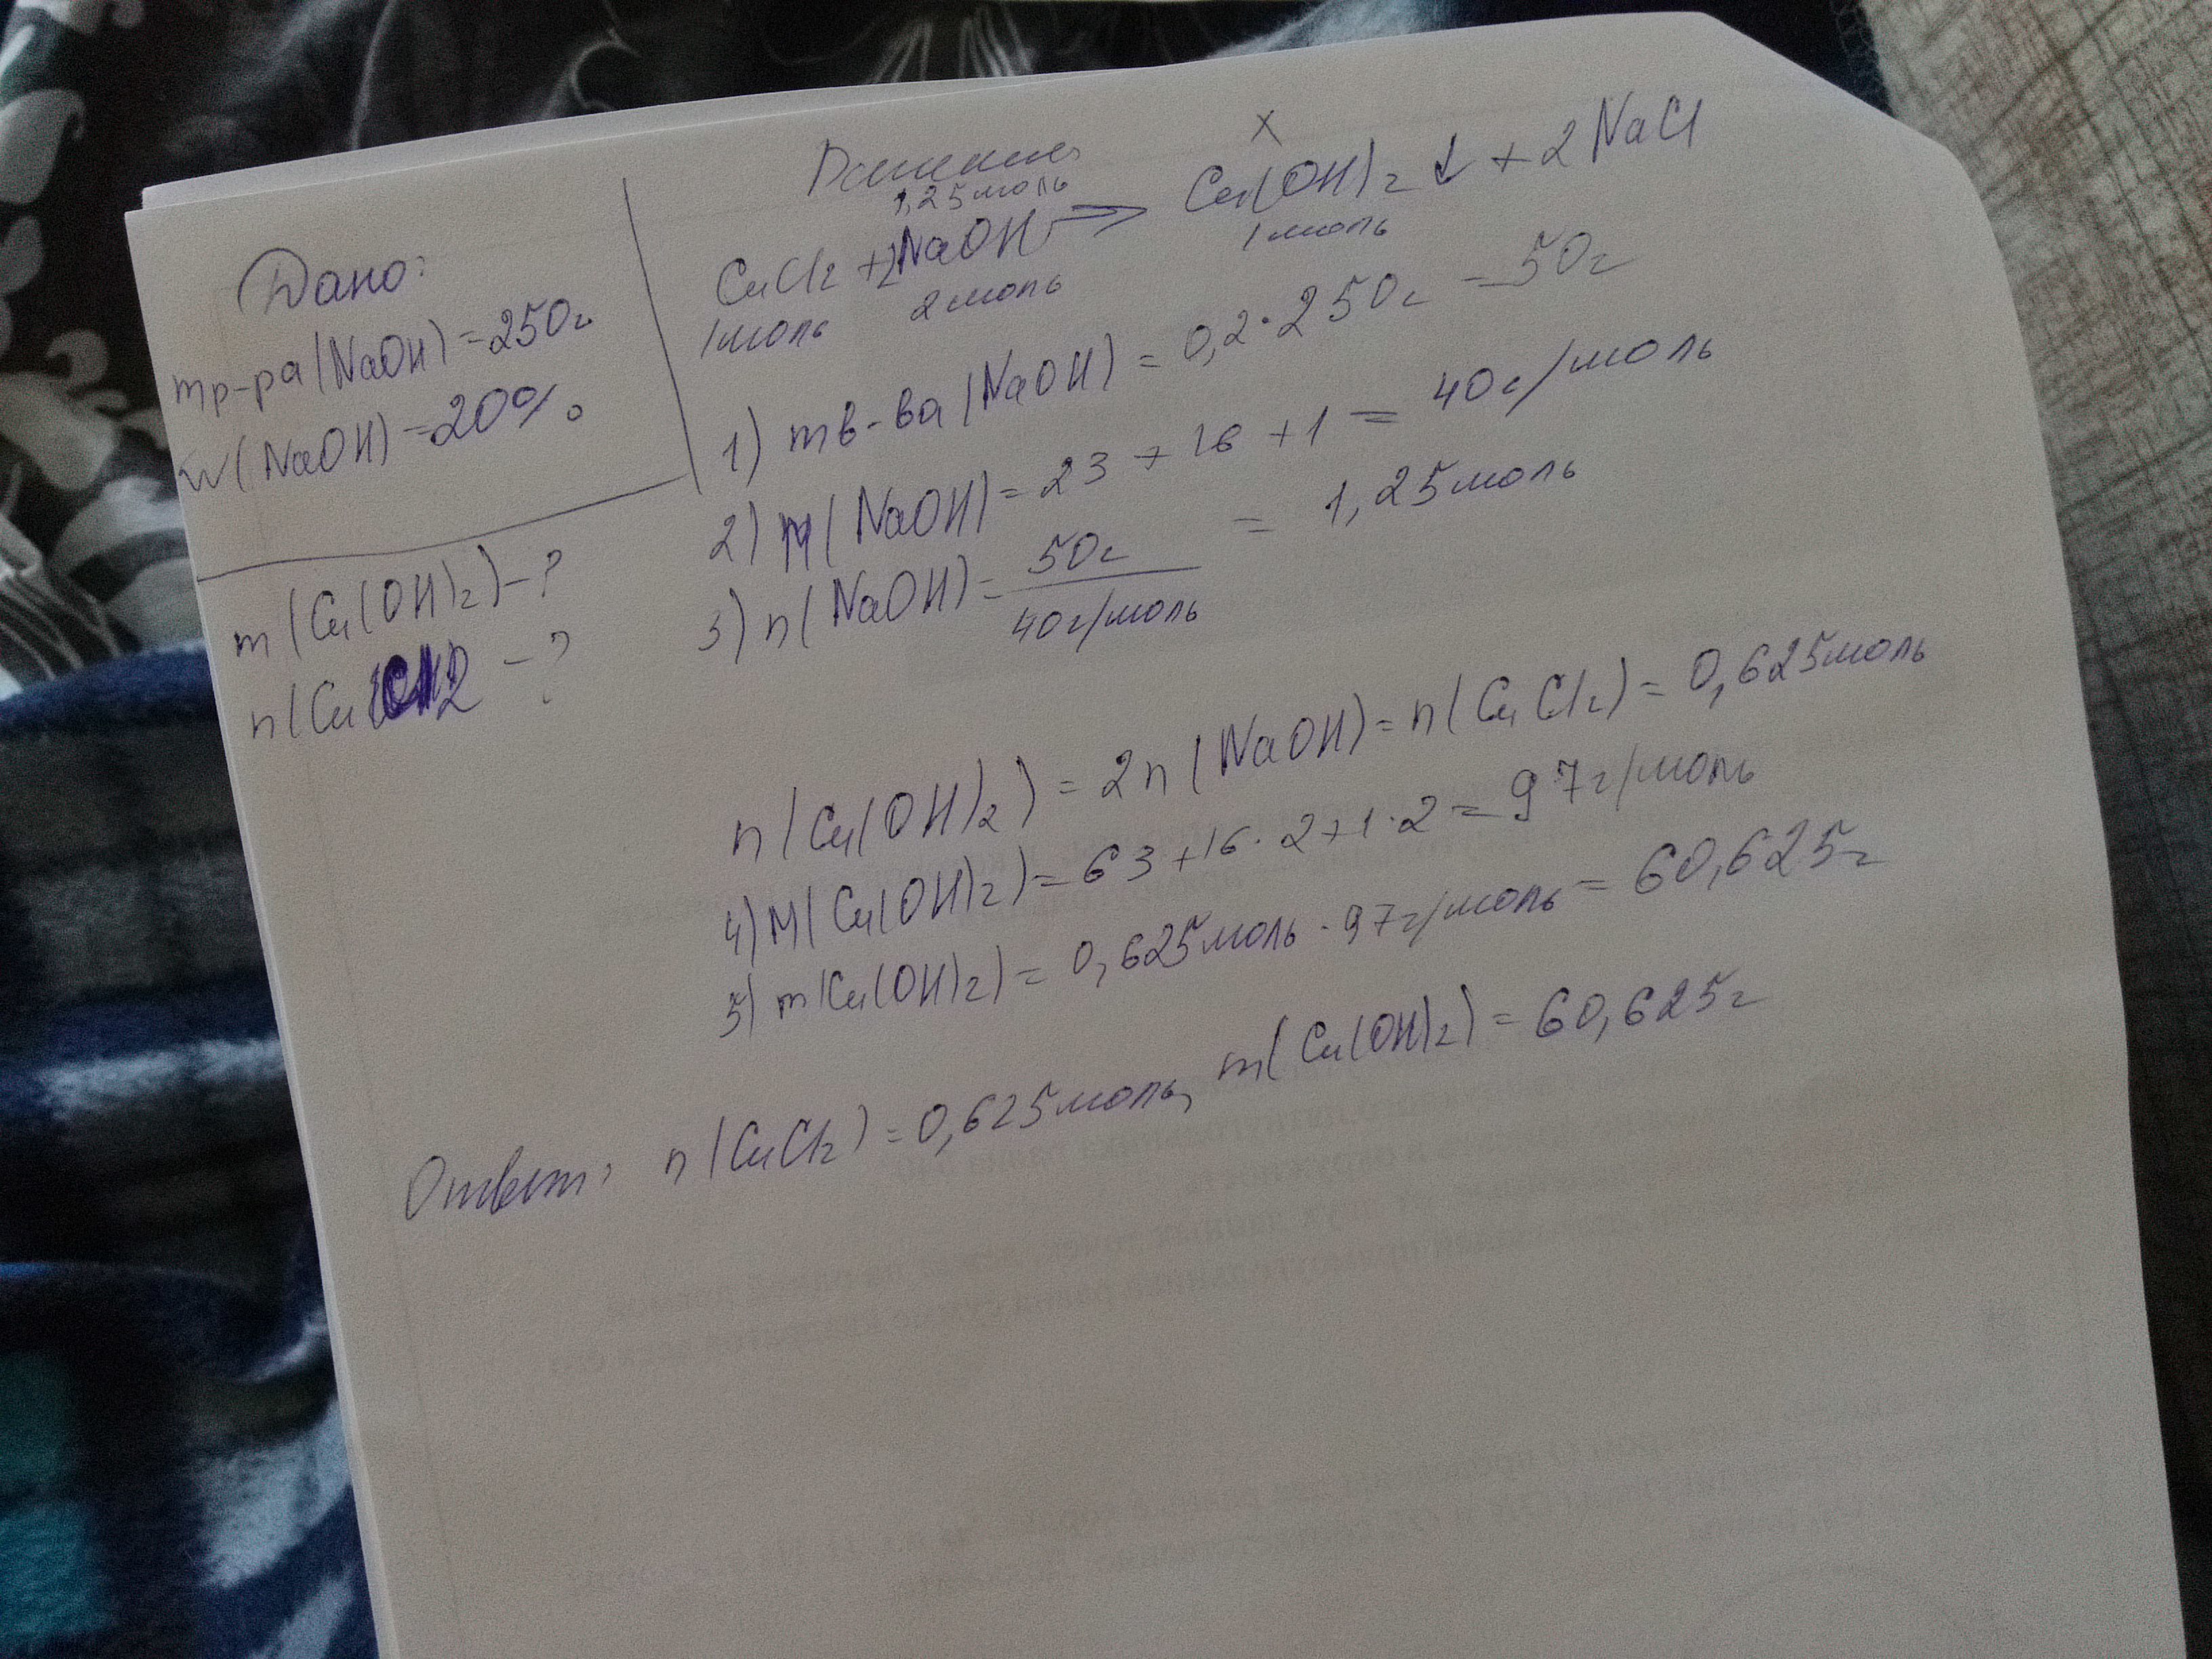 Дано:
mр-ра(NaOH)=250г
w(NaOH)=20%
m(Cu(OH)2)-?
n(CuCl2-?
Решение
1,25моль x
CuCl2+2NaOH→Cu(OH)2↓+2NaCl
1моль 2моль 1моль
1) mв-ва(NaOH)=0,2·250г=50г
2) M(NaOH)=23+16+1=40г/моль
3) n(NaOH)=50г/40г/моль=1,25моль
n(Cu(OH)2)=2n(NaOH)=n(CuCl2)=0,625моль
4) M(Cu(OH)2)=63+16·2+1·2=97г/моль
5) m(Cu(OH)2)=0,625моль·97г/моль=60,625г
Ответ: n(CuCl2)=0,625моль, m(Cu(OH)2)=60,625г